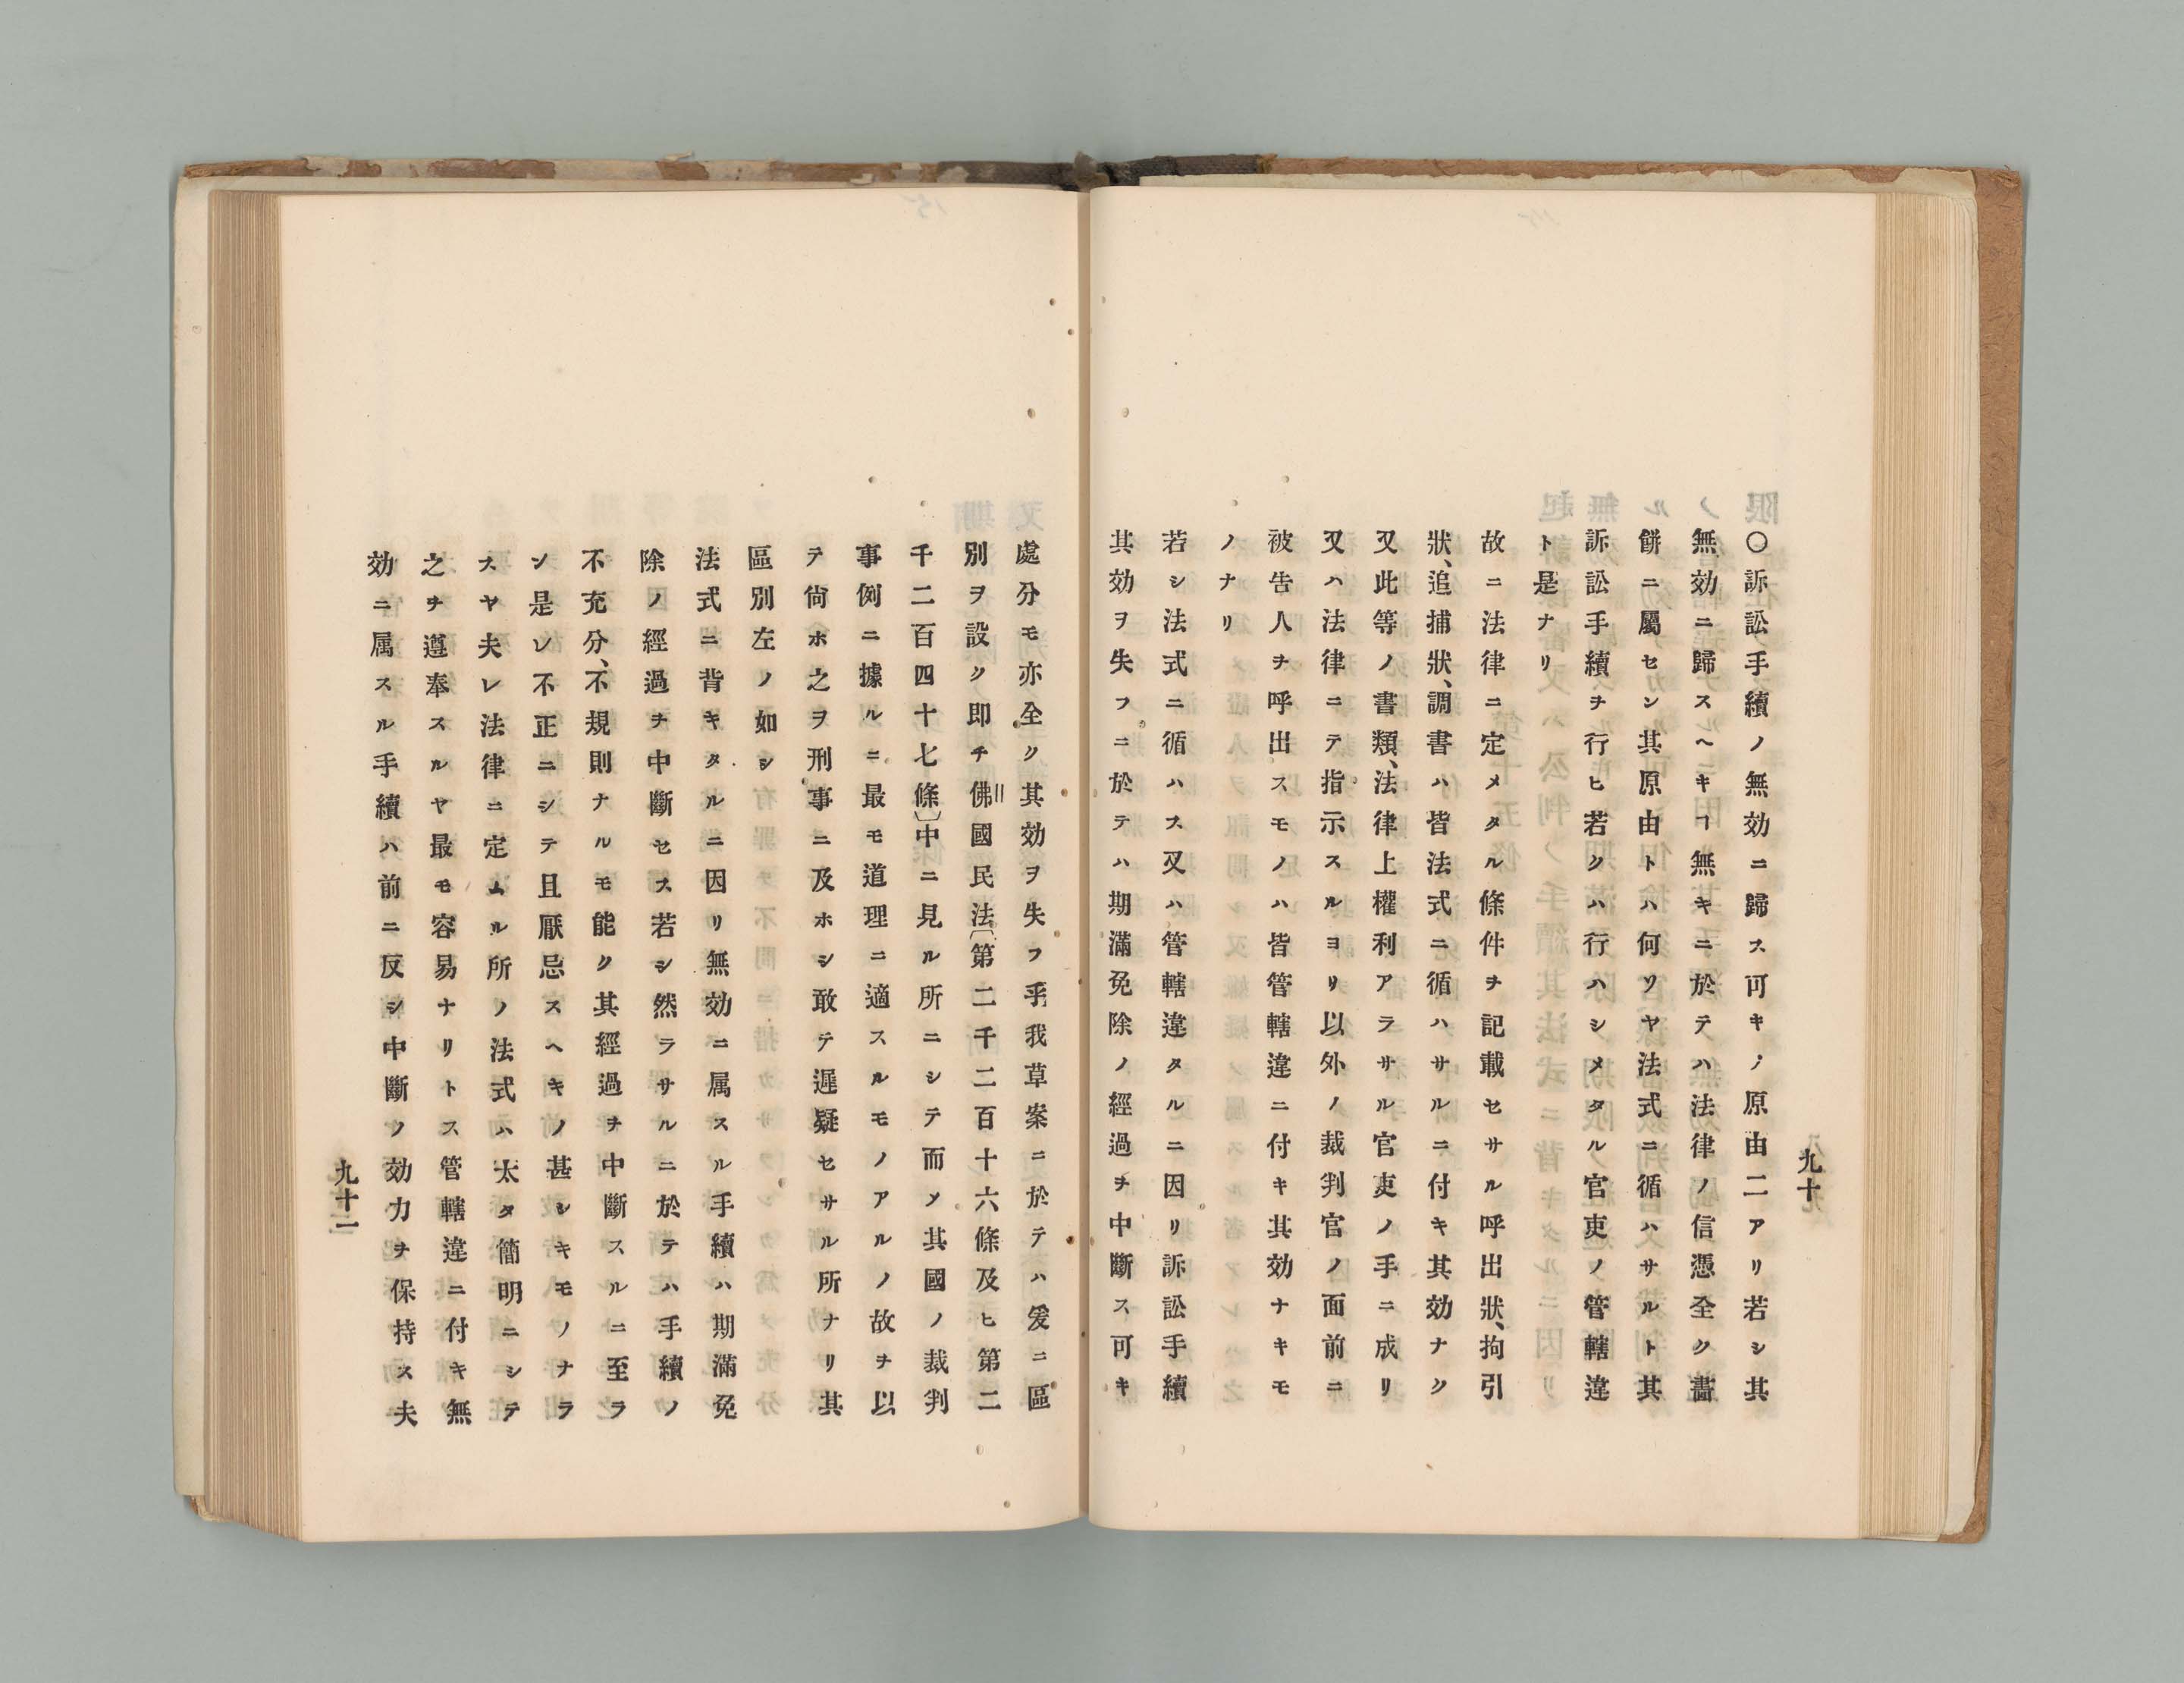 九十
〇訴訟手續ノ無効ニ歸ス可キノ原由二アリ若シ其
無効ニ歸スヘキヿ無キニ於テハ法律ノ信憑全ク畵
餅ニ屬セン其原由トハ何ソヤ法式ニ循ハサルト其
訴訟手續ヲ行ヒ若クハ行ハシメタル官吏ノ管轄違
ト是ナリ
故ニ法律ニ定メタル條件ヲ記載セサル呼出狀、拘引
狀、追捕狀、調書ハ皆法式ニ循ハサルニ付キ其効ナク
又此等ノ書類、法律上權利アラサル官吏ノ手ニ成リ
又ハ法律ニテ指示スルヨリ以外ノ裁判官ノ面前ニ
被告人ヲ呼出スモノハ皆管轄違ニ付キ其効ナキモ
ノナリ
若シ法式ニ循ハス又ハ管轄違タルニ因リ訴訟手續
其効ヲ失フニ於テハ期滿免除ノ經過ヲ中斷ス可キ
處分モ亦全ク其効ヲ失フ乎我草案ニ於テハ爰ニ區
別ヲ設ク即チ佛國民法〔第二千二百十六條及ヒ第二
千二百四十七條〕中ニ見ル所ニシテ而ソ其國ノ裁判
事例ニ據ルニ最モ道理ニ適スルモノアルノ故ヲ以
テ尙ホ之ヲ刑事ニ及ホシ敢テ遲疑セサル所ナリ其
區別左ノ如シ
法式ニ背キタルニ因リ無効ニ属スル手續ハ期滿免
除ノ經過ヲ中斷セス若シ然ラサルニ於テハ手續ノ
不充分、不規則ナルモ能ク其經過ヲ中斷スルニ至ラ
ン是レ不正ニシテ且厭忌スヘキノ甚シキモノナラ
スヤ夫レ法律ニ定ムル所ノ法式ハ太タ簡明ニシテ
之ヲ遵奉スルヤ最モ容易ナリトス管轄違ニ付キ無
効ニ属スル手續ハ前ニ反シ中斷ノ効力ヲ保持ス夫
九十二